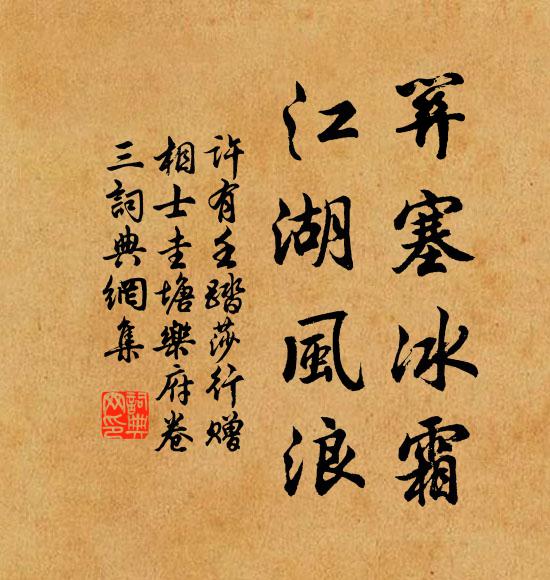 塞冰霜
江湖風浪
許有壬踏莎行贈
相士圭塘樂府卷
三詞典網集
詞典
网印